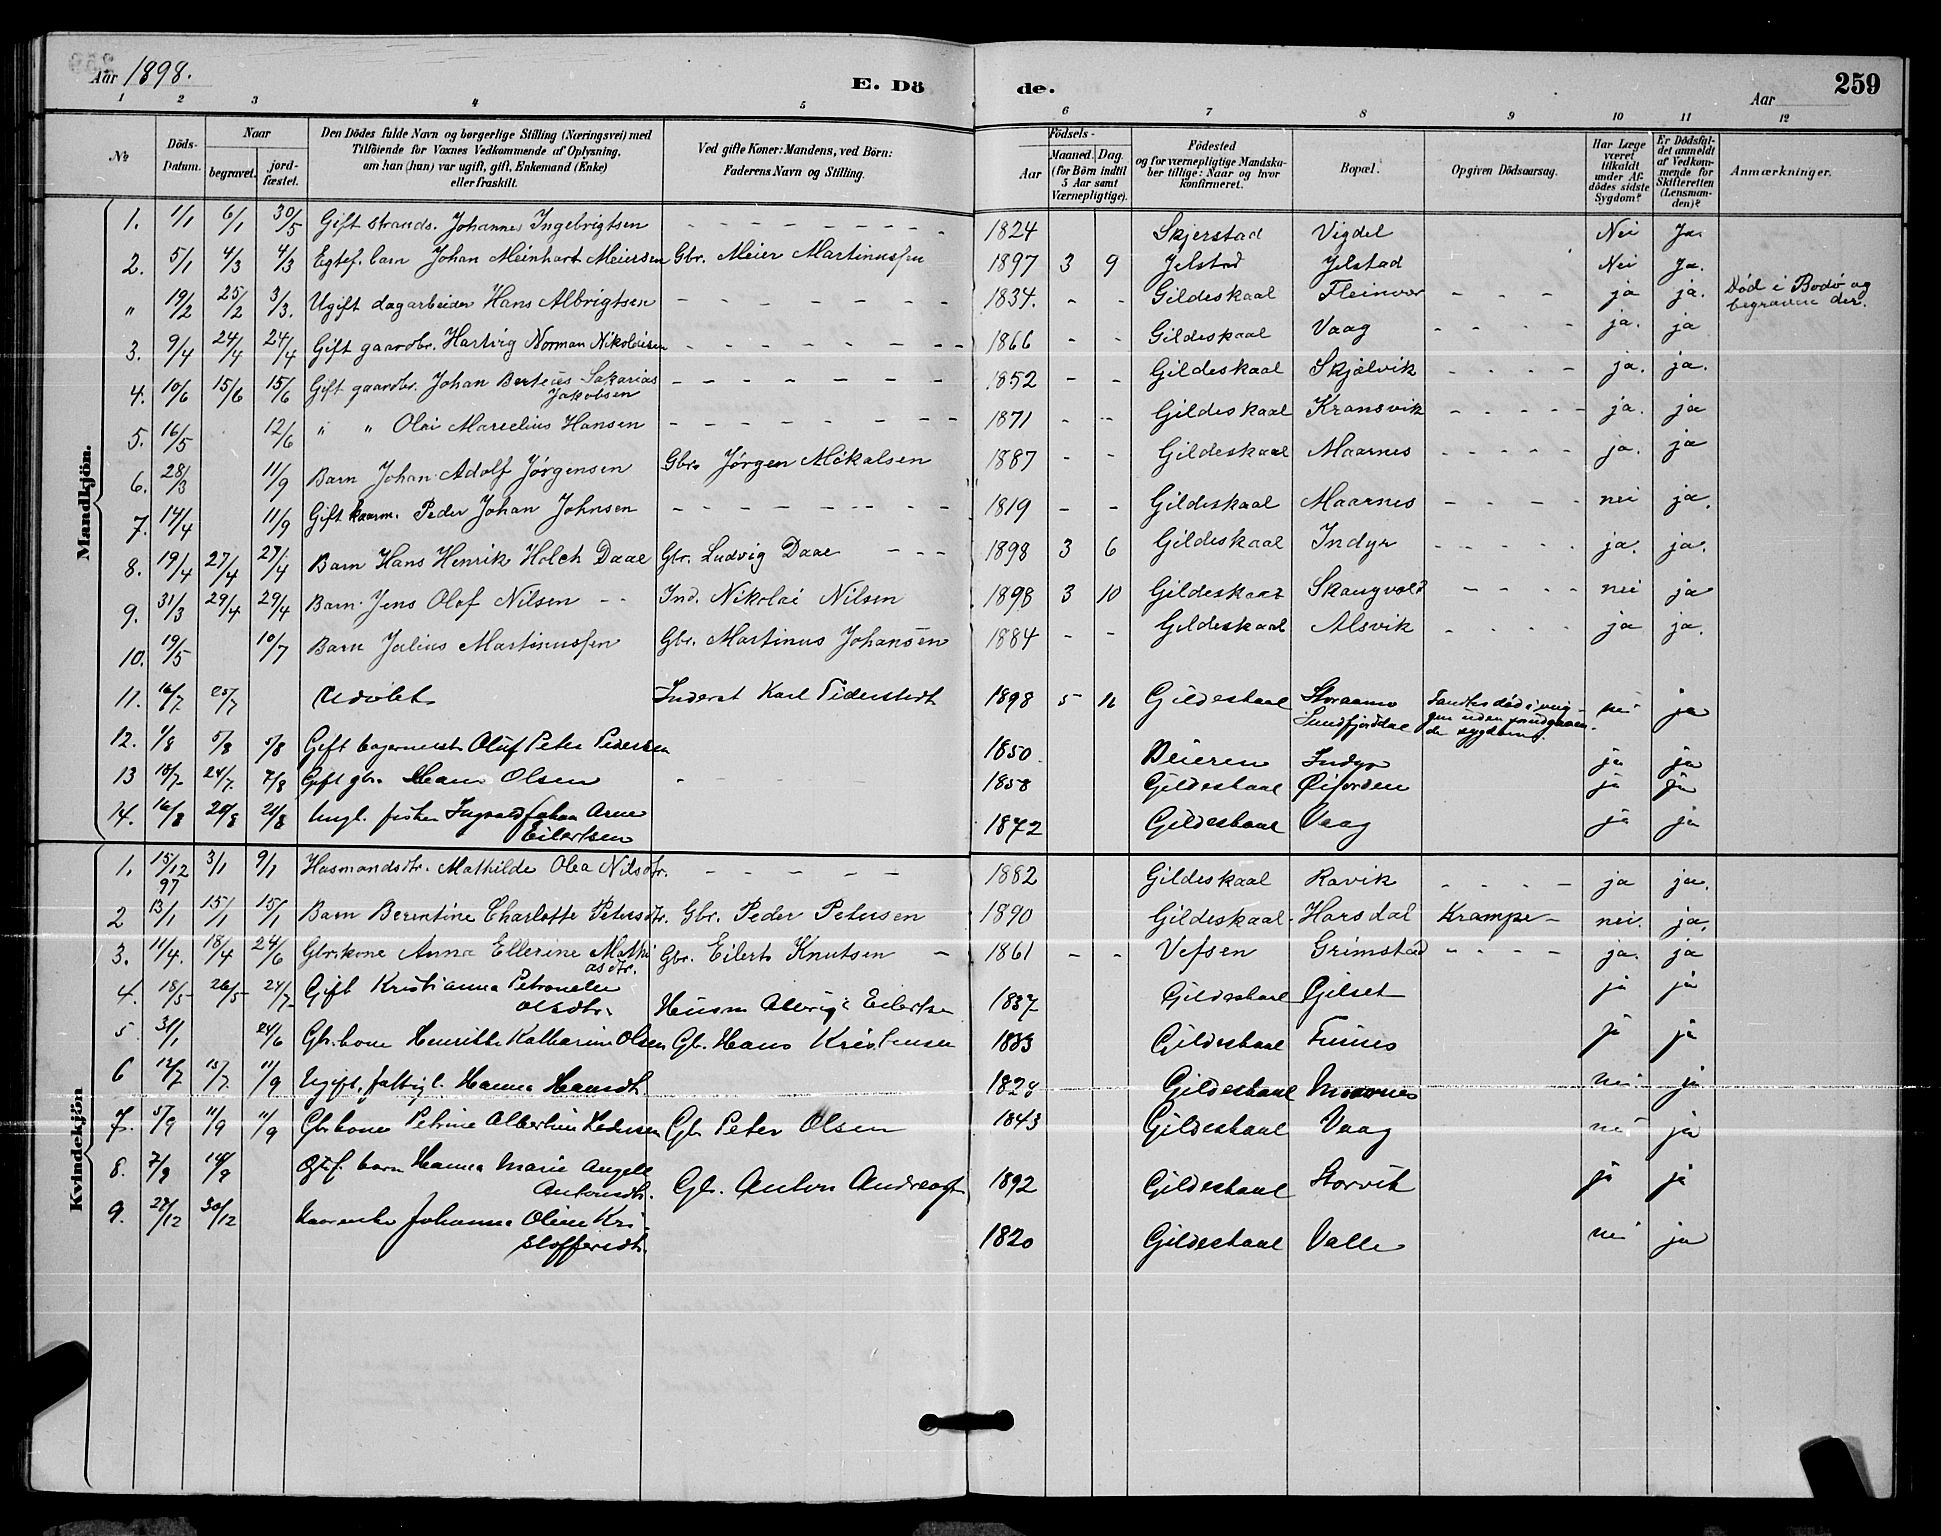 Aar 1898.
E. Dö
de.
Aar
259
1 2 3 4 5 6 7 8 9 10 11 12
№
Döds-Datum.
Naar
begravet.
jord-fæstet.
Den Dödes fulde Navn og borgerlige Stilling (Næringsvei) med
Tilföiende for Voxnes Vedkommende af Oplysning,
om han (hun) var ugift, gift, Enkemand (Enke)
eller fraskilt.
Ved gifte Koner: Mandens, ved Börn:
Faderens Navn og Stilling.
Födsels-
Aar
Maaned. Dag.
(for Börn indtil
5 Aar samt
Værnepligtige).
Födested
og for værnepligtige Mandska-
ber tillige: Naar og hvor
konfirmeret.
Bopæl.
Opgiven Dödsaarsag.
Har Læge
været
tilkaldt
under Af-
dödes sidste
Sygdom?
Er Dödsfal-
det anmeldt
af Vedkom-
mende for
Skifteretten
(Lensman-
den)?
Anmærkninger.
Mandkjön.
1. 1/1 6/1 30/5 Gift strands. Johannes Ingebrigtsen - - - - - - - 1824 Skjerstad Vigdel Nei Ja.
2. 5/1 4/3 4/3 Egtef. barn Johan Meinhart Meiersen Gbr. Meier Martinussen 1897 3 9 Jelstad Jelstad Nei Ja.
" 19/2 25/2 3/3. Ugift dagarbeider Hans Albrigtsen - - - - - - - 1834. - - Gildeskaal Fleinvær - - - ja ja. Död i Bodø og
begraven der.
3. 9/4 24/4 24/4 Gift gaardbr. Hartvig Norman Nikolaisen - - - - - - - 1866 - - Gildeskaal Vaag - - - - ja. ja
4. 10/6 15/6 15/6 Gift gaardbr. Johan Berteus Sakarias
Jakobsen - - - - - - - 1852 - - Gildeskaal Skjelvik - - - - ja. ja.
5. 16/5 12/6 " " Olai Marselius Hansen - - - - - - - 1871 - - Gildeskaal Kransvik - - - - ja. ja
6. 28/3 11/9 Barn Johan Adolf Jørgensen Gbr. Jørgen Mikalsen 1887 - - Gildeskaal Maarnes - - - - ja. ja
7. 14/4 11/9 Gift kaarm. Peder Johan Johnsen - - - - - - - 1819 - - Gildeskaal Maarnes - - - - nei ja.
8. 19/4 27/4 27/4 Barn Hans Henrik Holch Daae Gbr. Ludvig Daae - - - 1898 3 6 Gildeskaal Indyr - - - - ja. ja.
9. 31/3 29/4 29/4 Barn Jens Olaf Nilsen - - Ind. Nikolai Nilsen 1898 3 10 Gildeskaal Skaugvold - - - - nei ja
10. 19/5 10/7 Barn Julius Martinussen Gbr. Martinus Johansen 1884 - - Gildeskaal Alsvik - - - - ja ja.
11. 16/7 25/7 Udøbt Inderst Karl Tiderstedt 1898 5 16 Gildeskaal Storaanes
Sundfjorddal nei ja
12. 1/8 5/8 5/8 Gift Oluf Peter Pedersen 1850 Beieren Indyr ja ja
13 18/7 24/7 7/8 Gift gbr. Hans Olsen - - 1858 Gildeskaal Øifjorden ja ja
14. 16/8 20/8 20/8 Ungk. fisker Ingvald Johan Arne
Eilertsen 1872 Gildeskaal Vaag ja ja
Kvindekjön
1. 15/12 97 3/1 9/1 Husmandsdtr. Mathilde Olea Nilsdtr. - - - - - 1882 Gildeskaal Ravik - - - - ja ja.
2 13/1 15/1 15/1 Barn Berentine Charlotte Petersdtr. Gbr. Peder Petersen 1890 Gildeskaal Horsdal Krampe - nei. ja.
3. 11/4. 18/4 24/6 Gbrskone Anna Ellerine Mathi
asdtr. Gbr. Eilert Knutsen - 1861 - - Vefsen Grimstad - - - - ja. ja
4. 18/5 26/5 24/7 Gift Kristianna Petronelle
Olsdtr. Husm Eilertsen 1837 Gildeskaal Gilset ja ja
5. 31/1 24/6 Gbr.kone Henrikke Katharine Olsen Gb. Hans Kristensen 1833 Gildeskaal Finnes ja ja
6 12/7 15/7. 11/9 Ugift, fattigl. Hanna Hansdtr. 1828 Gildeskaal Maarnes nei ja
7. 5/9 11/9 11/9 Gbrkone Petrine Albertine Pedersen Gbr Peter Olsen 1843 Gildeskaal Vaag nei ja
8. 7/9 14/9 Egtef. barn Hanna Marie Angell
Antonsdtr. Gbr. Anton Andreas 1892 Gildeskaal Storvik ja ja
9. 22/12 30/12 Kaarenke Johanna Oline Kri-
stoffersdtr. 1820 Gildeskaal Valle nei ja